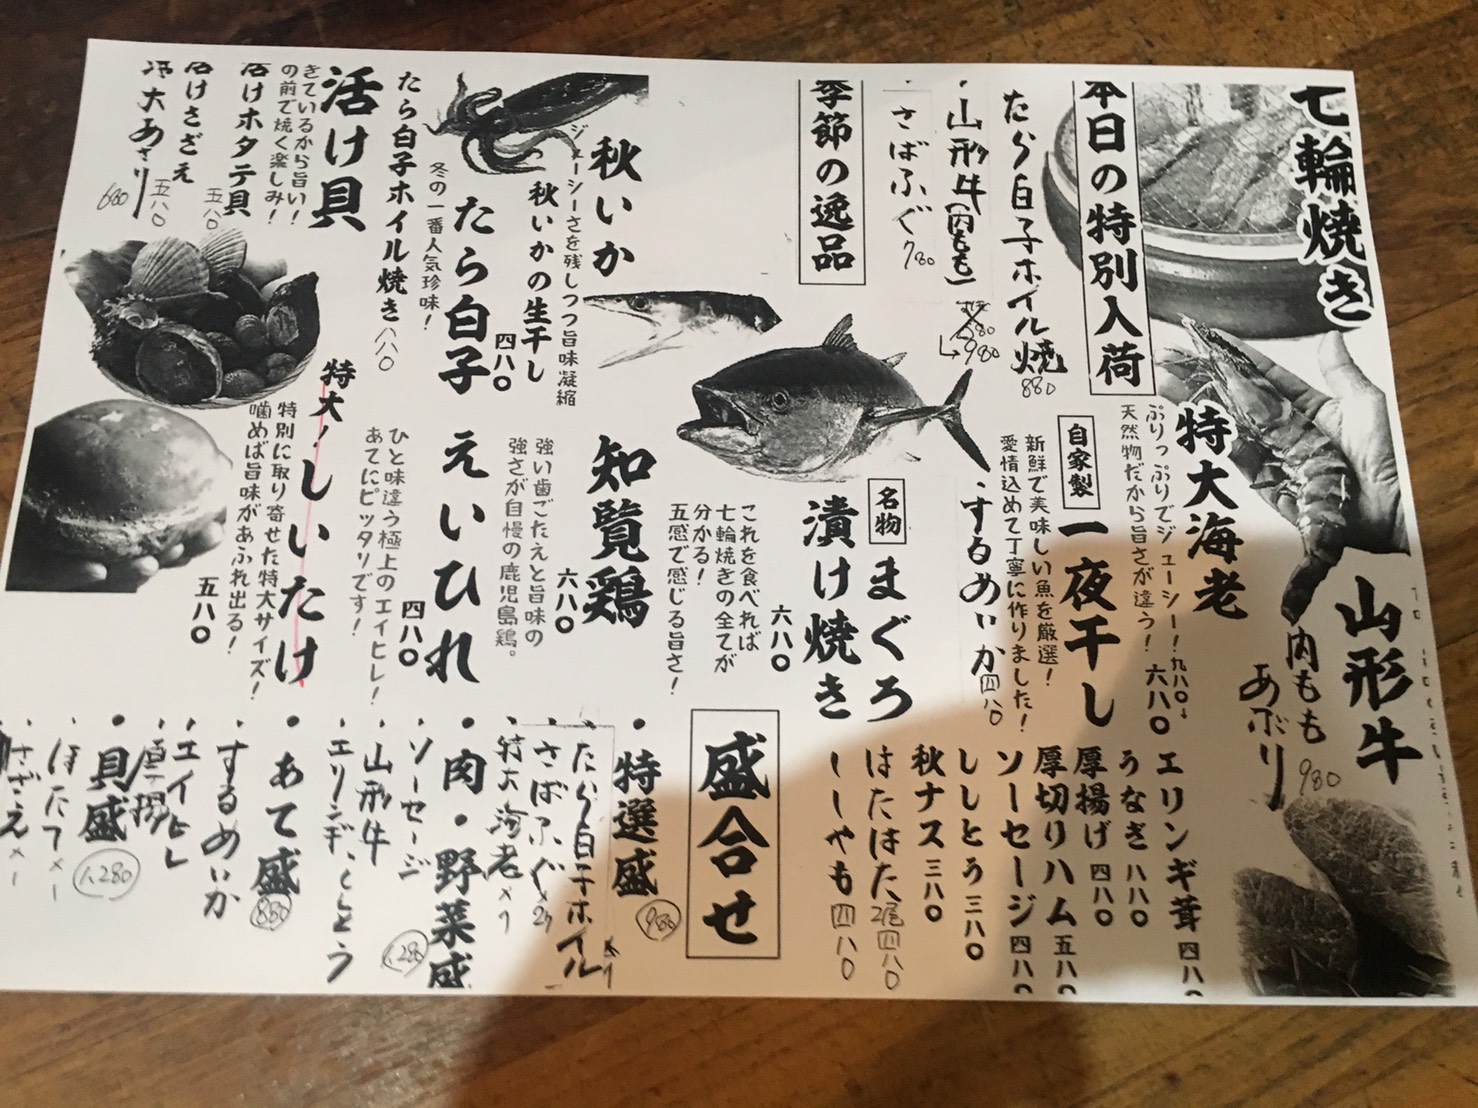 七輪焼き
本日の特別入荷
たら白子ホイル焼 880
・山形牛(内もも) 980
さばふぐ 780
季節の逸品
秋いか
ジューシーさを残しつつ旨味凝縮
秋いかの生干し 四八〇
たら白子
冬の一番人気珍味!
たら白子ホイル焼き 八八〇
活け貝
きているから旨い!
の前で焼く楽しみ!
活けホタテ貝 五八〇
活けさざえ 五八〇
大あさり 680
山形牛
内もも
あぶり 980
特大海老
ぷりっぷりでジューシー! 九八〇
天然物だから旨さが違う! 六八〇
自家製
一夜干し
新鮮で美味しい魚を厳選!
愛情込めて丁寧に作りました!
・するめいか 四八〇
名物
まぐろ
漬け焼き 六八〇
これを食べれば
七輪焼きの全てが
分かる!
五感で感じる旨さ!
知覧鶏 六八〇
強い歯ごたえと旨味の
強さが自慢の鹿児島鶏。
えいひれ 四八〇
ひと味違う極上のエイヒレ!
あてにピッタリです!
特大!しいたけ
特別に取り寄せた特大サイズ!
噛めば旨味があふれ出る! 五八〇
エリンギ茸 四八〇
うなぎ 八八〇
厚揚げ 四八〇
厚切りハム 五八〇
ソーセージ 四八〇
ししとう 三八〇
秋ナス 三八〇
はたはた 2尾 四八〇
ししゃも 四八〇
盛合せ
・特選盛 980
・たら白子ホイル
・さばふぐ
・特大海老
・肉・野菜盛 1,280
・ソーセージ
・山形牛
・エリンギ・ししとう
・あて盛 880
・するめいか
・エイヒレ
・厚揚
・貝盛 1,280
・ほたて
・さざえ